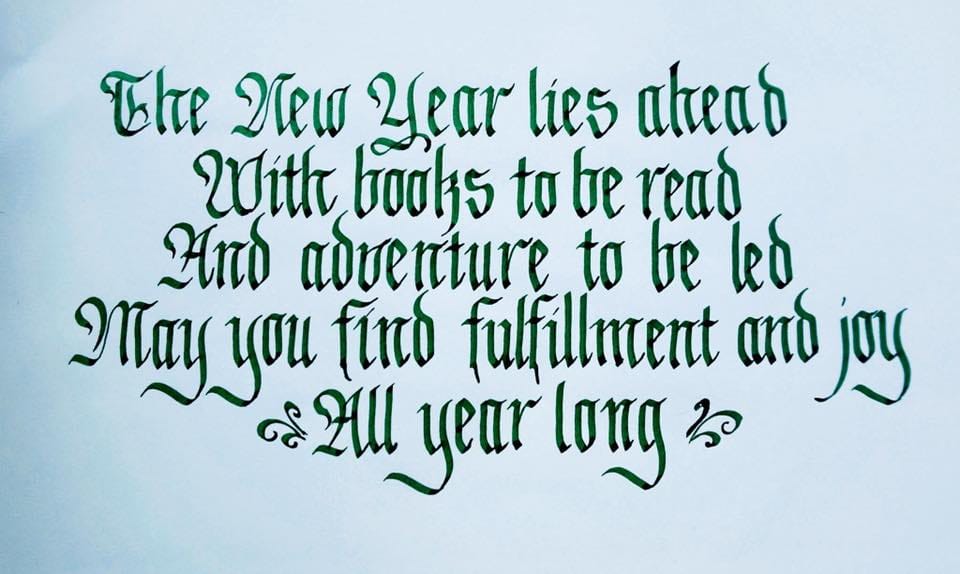 The New Year lies ahead
With books to be read
And adventure to be led
May you find fulfillment and joy
All year long